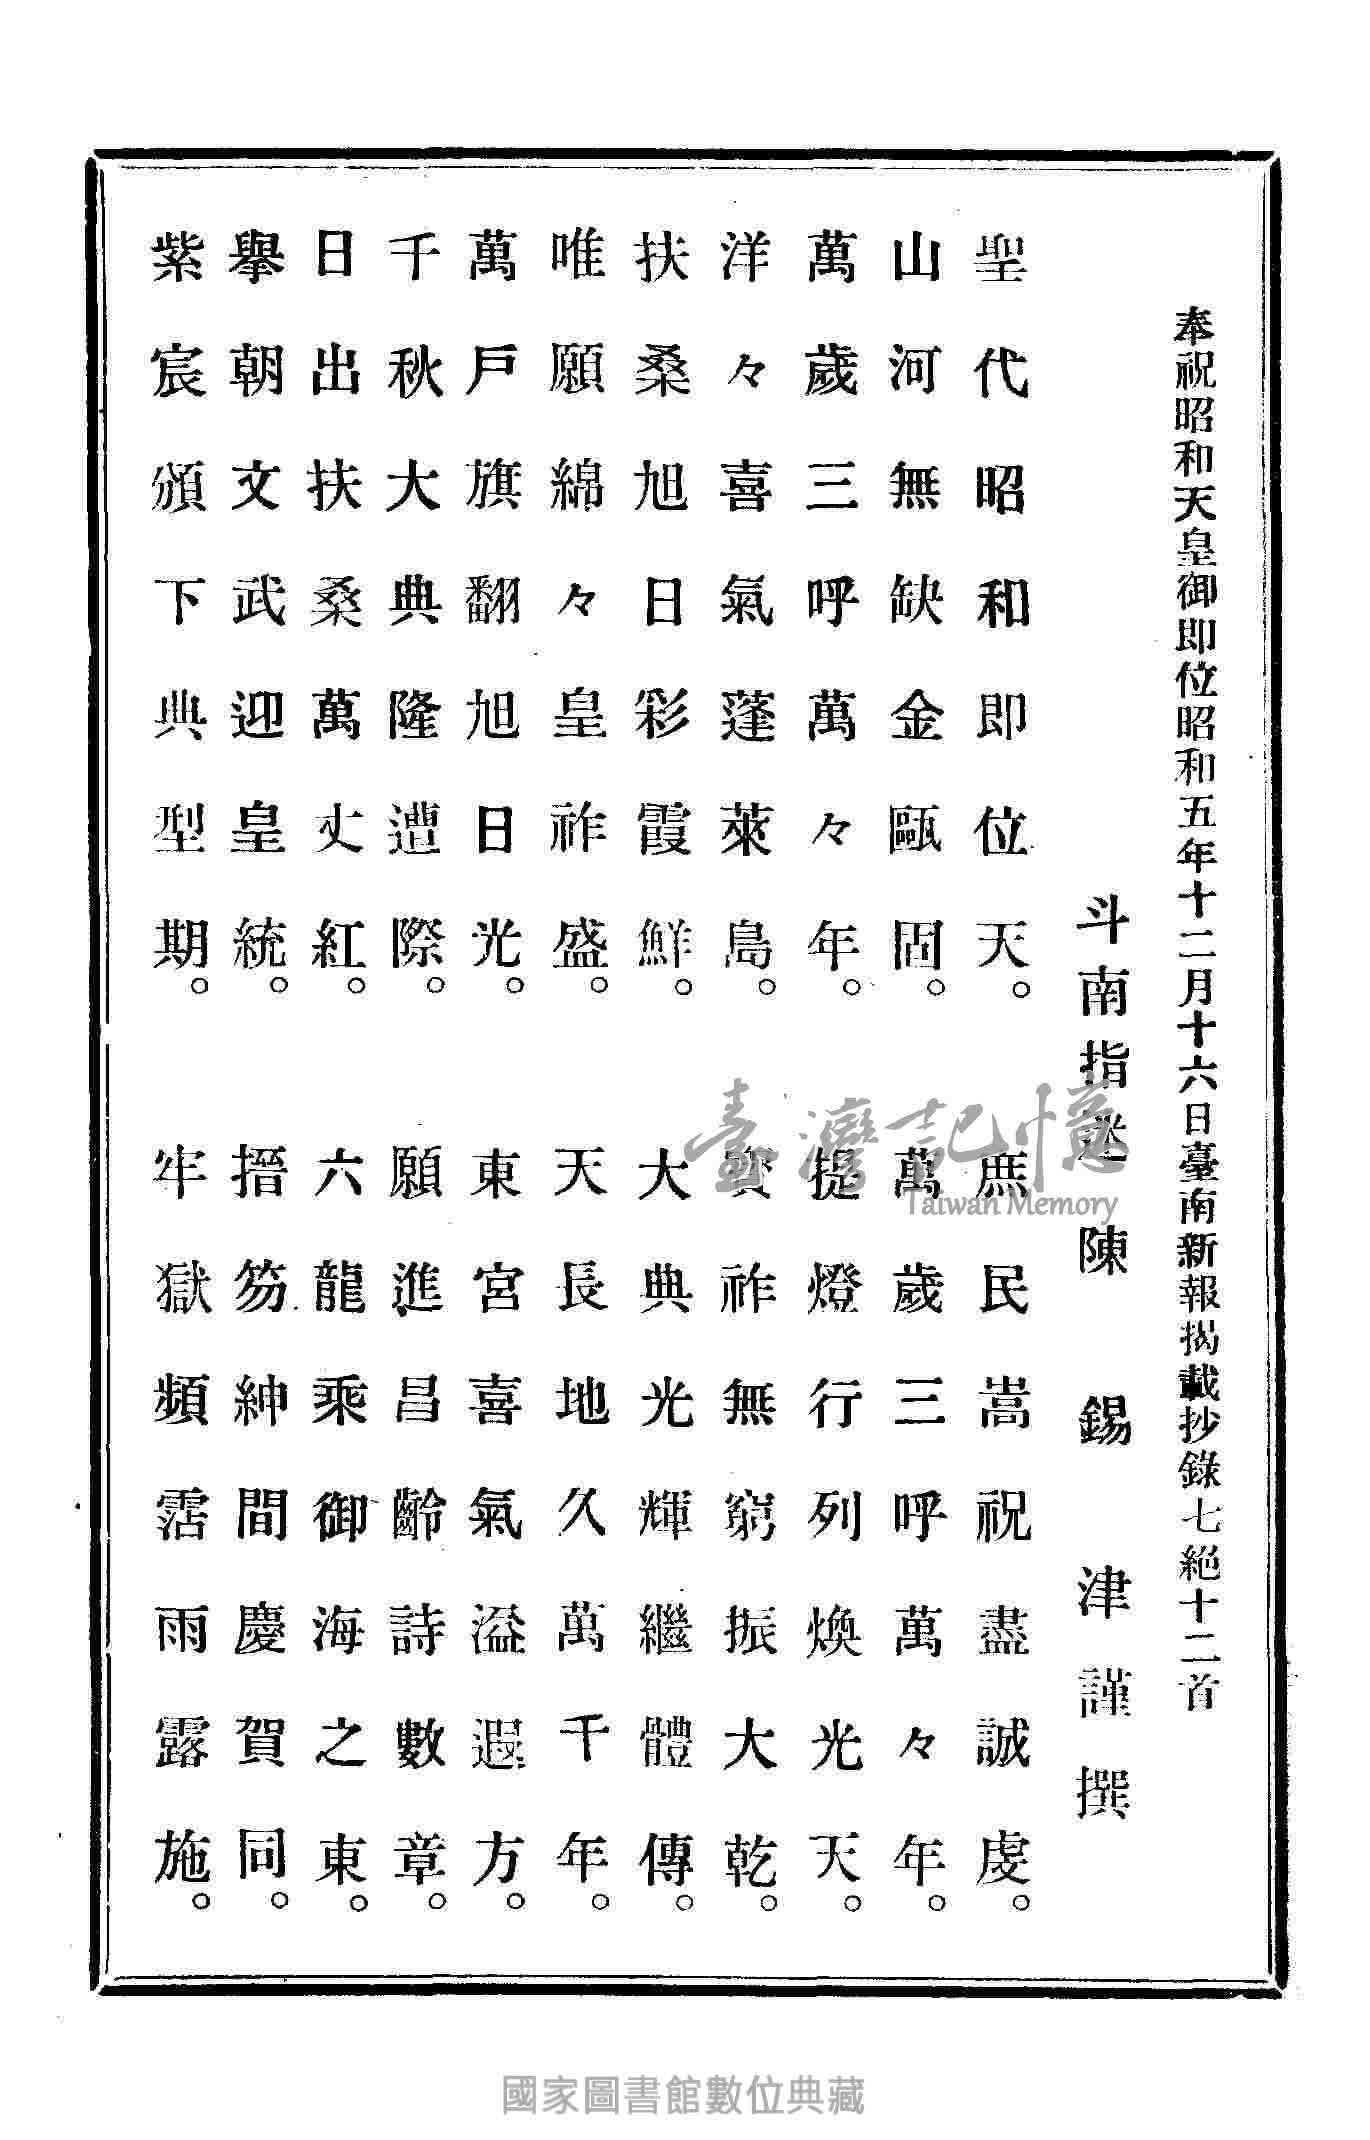 奉祝昭和天皇御即位昭和五年十二月十六日臺南新報揭載抄錄七絕十二首
斗南指迷 陳錫津謹撰
聖代昭和即位天。 庶民嵩祝盡誠虔。
山河無缺金甌固。 萬歲三呼萬々年。
萬歲三呼萬々年。 提燈行列煥光天。
洋々喜氣蓬萊島。 寶祚無窮振大乾。
扶桑旭日彩霞鮮。 大典光輝繼體傳。
唯願綿々皇祚盛。 天長地久萬千年。
萬戶旗翻旭日光。 東宮喜氣溢遐方。
千秋大典隆遭際。 願進昌齡詩數章。
日出扶桑萬丈紅。 六龍乘御海之東。
舉朝文武迎皇統。 搢笏紳間慶賀同。
紫宸頒下典型期。 牢獄頻霑雨露施。
臺灣記憶
Taiwan Memory
國家圖書館數位典藏